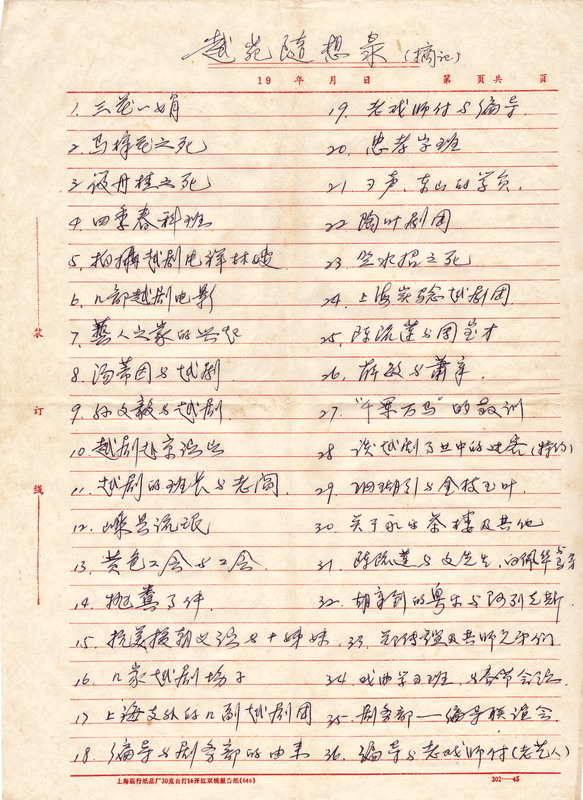 越苑随想录(摘记)
19 年 月 日 第 页共 页
1. 三花一娟
2. 马樟花之死
3. 筱丹桂之死
4. 四季春科班
5. 拍摄越剧电影祥林嫂
6. 几部越剧电影
7. 艺人之家的兴起
8. 汤蒂因与越剧
9. 孙文毅与越剧
10. 越剧赴京演出
11. 越剧的班长与老阊
12. 嵊县流氓
13. 黄色工会与工会
14. 抛粪事件
15. 抗美援朝义演与十姊妹
16. 几家越剧场子
17. 上海支外的几副越剧团
18. 编导与剧务部的由来
19. 老戏师付与编导
20. 忠孝字班
21. 东山的学员
22. 陶叶剧团
23. 竺水招之死
24. 上海实验越剧团
25. 陈流莲与周宝才
26. 薛敏与萧章
27. "千军万马"的教训
28. 谈越剧事业中的逆客(特约)
29. 珊瑚引与金枝玉叶
30. 关于永乐茶楼及其他
31. 陈流莲与文先生,向佩华
32. 胡章钊的粤乐与阿列克斯
33. 郑传鑑及其师兄弟们
34. 戏曲学习班与春节会演
35. 剧务部——编导联谊会
36. 编导与老戏师付(老艺人)
装
订
线
上海庙行纸品厂30克自打16开红双线报告纸(646)
302—45